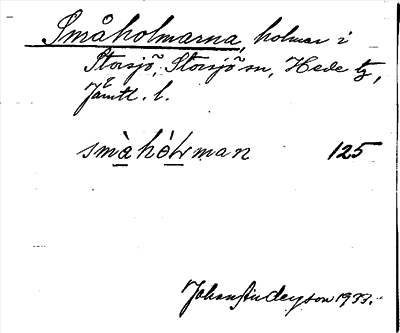 Småholmarna, holmar i
Storsjö, Storsjö sn, Hede tg,
Jämtl. l.
småhol̵man 125
Johanster 1933.